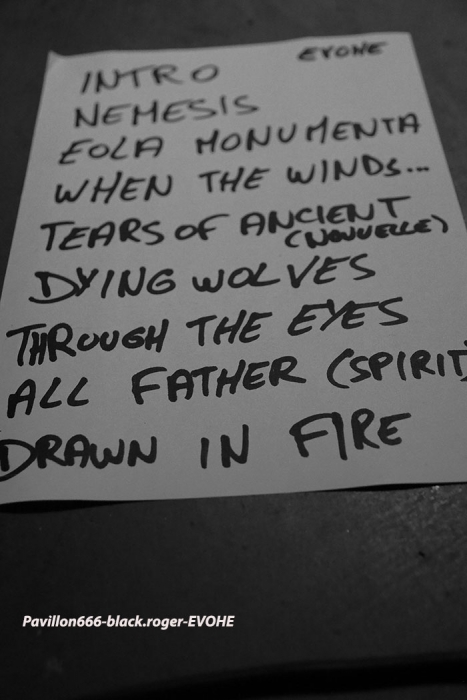 EVOHE
INTRO
NEMESIS
EOLA MONUMENTA
WHEN THE WINDS...
TEARS OF ANCIENT
(NOUVELLE)
DYING WOLVES
THROUGH THE EYES
ALL FATHER (SPIRIT)
DRAWN IN FIRE
Pavillon666-black.roger-EVOHE